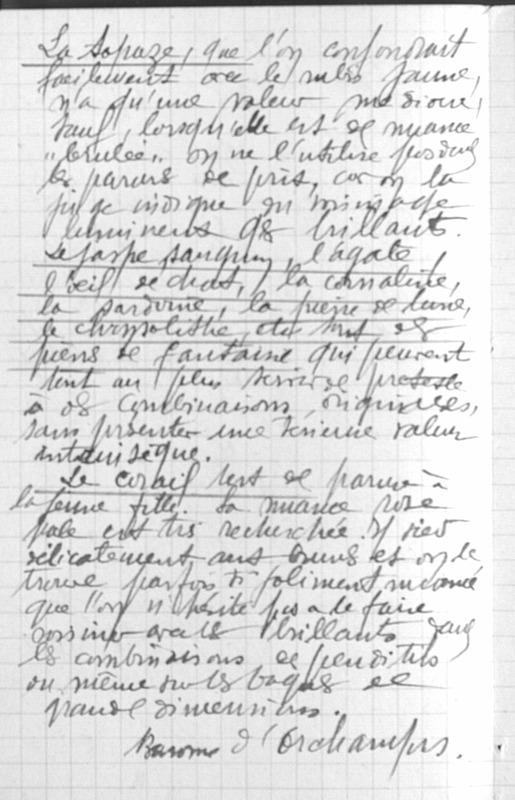 La topaze, que l'on confondrait
facilement avec le rubis jaune,
n'a qu'une valeur médiocre,
sauf, lorsqu'elle est de nuance
"brulée". on ne l'utilise pas dans
les parures de prix, car on la
juge indigne du voisinage
des brillants.
Le jaspe sanguin, l'agate,
l'œil de chat, la cornaline,
la sardoine, la pierre de lune,
la chrysolithe, etc sont des
pierres de fantaisie qui peuvent
tout au plus servir de prétexte
à des combinaisons originales,
sans présenter une sérieuse valeur
intrinsèque.
Le corail sert de parure à
la jeune fille. Sa nuance rose
pâle est très recherchée. Il sied
délicatement aux brunes et on le
trouve parfois si joliment nuancé
que l'on n'hésite pas à le faire
voisiner avec les brillants dans
les combinaisons de pendentifs
ou même sur les bagues de
grande dimensions.
Baronne d'Orchamps.